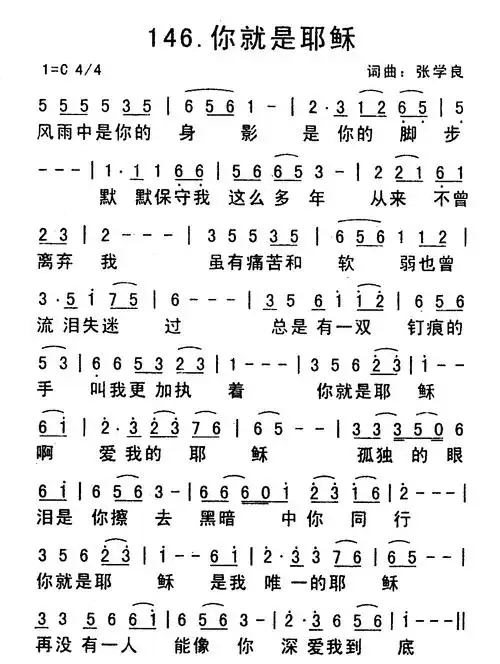 146.你就是耶稣
1=C 4/4 词曲：张学良
5 5 5 5 5 3 5 | 6 5 6 1 - | 2 · 3 1 2 6 5 | 5
风雨中是你的 身 影 是 你的 脚 步
- - - | 1 · 1 1 6 6 | 5 6 6 5 3 | 2 2 1 6 1
默 默保守我 这么多 年 从来 不曾
2 3 | 2 - - - | 3 5 5 5 3 5 | 6 5 6 1 1 2 |
离弃 我 虽有痛苦和 软 弱也曾
3 · 5 i 7 5 | 6 - - - | 3 5 6 i i 2 | 6 5 6
流 泪失迷 过 总是有一双 钉痕的
5 3 | 6 6 5 3 2 3 | 1 - - - | 3 5 6 2 3 | i - -
手 叫我更加执 着 你就是耶 稣
6 i | 2 · 3 2 3 7 6 | 6 5 - - | 3 3 3 5 0 6
啊 爱我的 耶 稣 孤独的眼
6 i | 6 5 6 3 - | 6 6 6 0 i 2 3 i 6 | 2 - - - |
泪是 你擦 去 黑暗 中你 同 行
3 5 6 2 3 | i - - 6 i | 2 · 3 3 7 6 | 6 5 - - |
你就是耶 稣 是我 唯 一的耶 稣
3 3 5 6 6 i | 5 6 3 - | 2 · 3 6 5 6 | i - - - ||
再没有一人 能像 你 深 爱我到 底